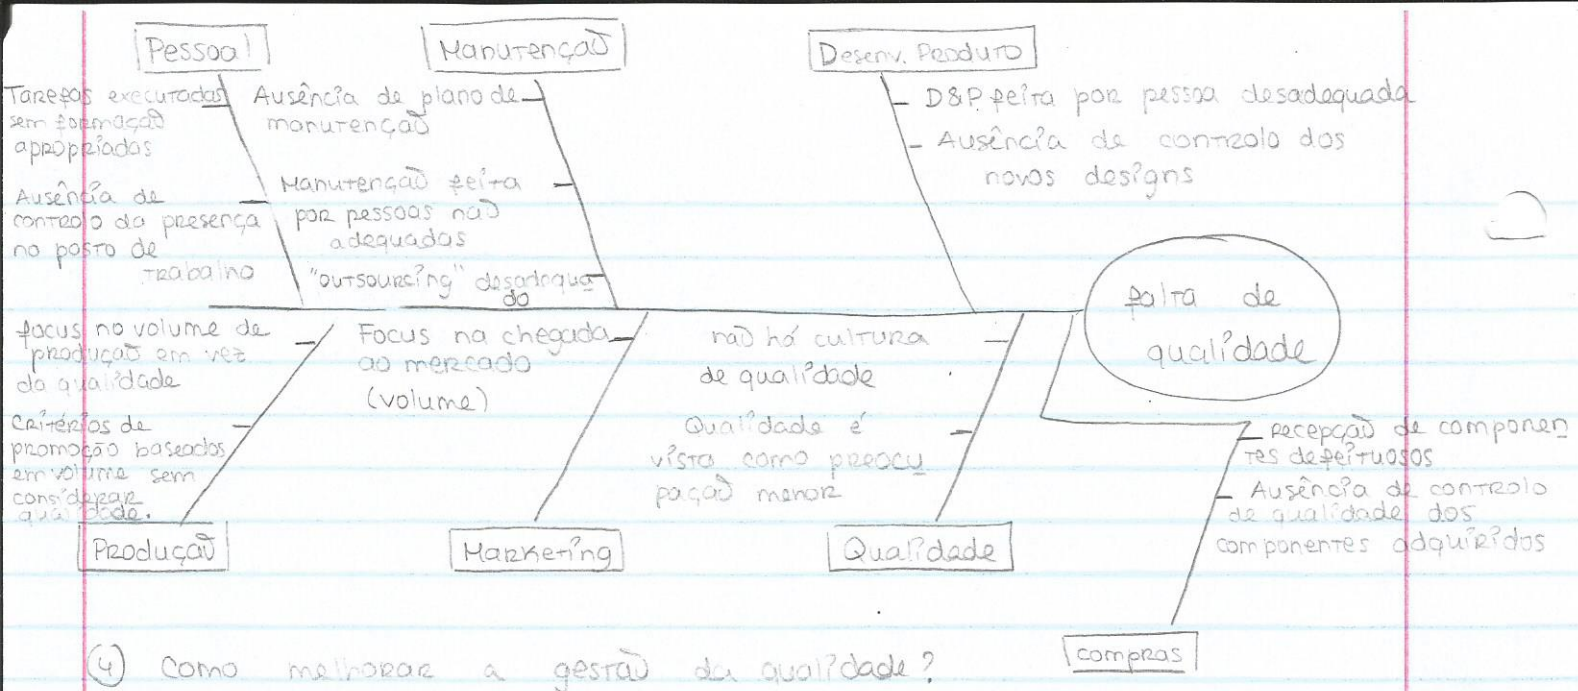 Pessoal
Tarefas executadas
sem formação
apropriadas
Ausência de
controlo da presença
no posto de
trabalho
Manutenção
Ausência de plano de
manutenção
Manutenção feita
por pessoas não
adequadas
"outsourcing" desadequa
do
Desenv. Produto
D&P. feita por pessoa desadequada
Ausência de controlo dos
novos designs
falta de
qualidade
focus no volume de
produção em vez
da qualidade
Critérios de
promoção baseados
em volume sem
considerar
qualidade.
Produção
Focus na chegada
ao mercado
(volume)
Marketing
não há cultura
de qualidade
Qualidade é
vista como preocu
pação menor
Qualidade
recepção de componen
tes defeituosos
Ausência de controlo
de qualidade dos
componentes adquiridos
compras
4 Como melhorar a gestão da qualidade?